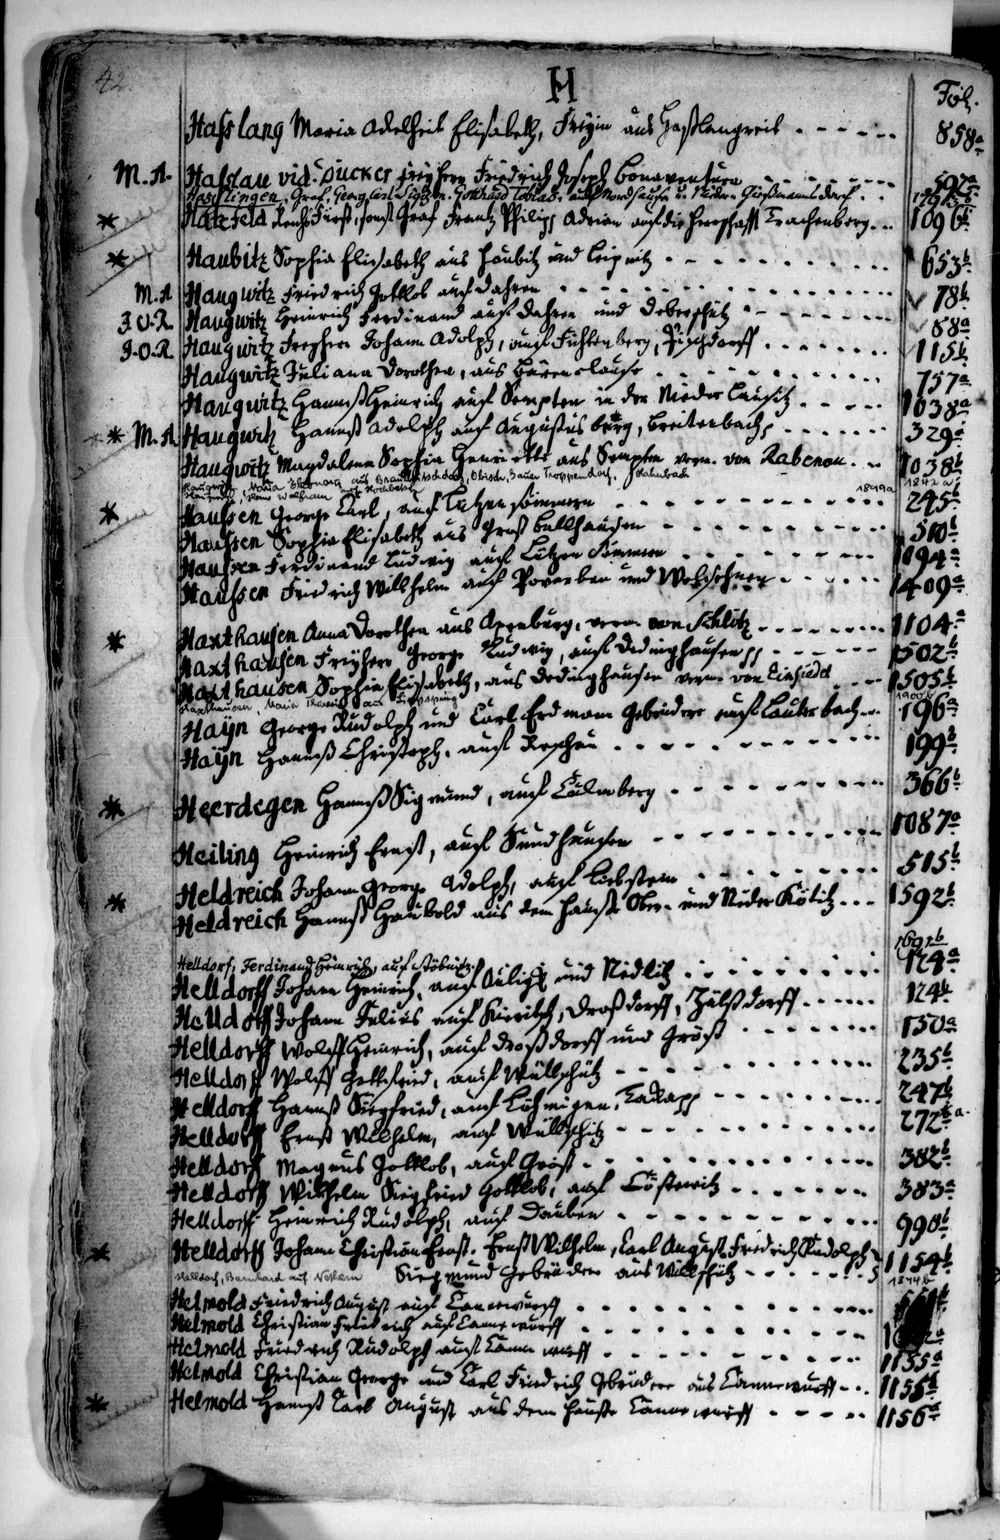 42.
H
Fol.
Hasslang Maria Adelheit Elisabeth, Freyin aus Haßlangreit 858a
M. A. Hasslau vid. Dücker freyherr Friedrich Joseph Bonaventura 597a
Hasslingen, Graf, Georg Carl Gottfried Tobias, auf Nordhausen u. Nieder-
* Hatzfeld Reichs Fürst, sonst Graf Frantz Philipp Adrian auf die Herrschafft Trachenberg 1096b
* Haubitz Sophia Elisabeth aus Haubitz und Leipnitz 653b
M. A Haugwitz Friedrich Gottlob auf Dahren 78b
J. O. R. Haugwitz Heinrich Ferdinand auf Dahren und Doberschütz 88a
J. O. R. Haugwitz Freyherr Johann Adolph, auf Lichtenberg, Pischdorff 115b
Haugwitz Juliana Dorothea, aus Bärenclause 757a
Haugwitz Hannß Heinrich auf Sempten in der Nieder Lausitz 1038a
* M. A Haugwitz Hannß Adolph auf Augustus burg, Breitenbach 329a
Haugwitz Magdalena Sophia Henriette aus Sempten verm. von Rabenau 1038b
Haugwitz, Maria Eleonora auf Brauchitschdorf, Obisch, Bauer Troppendorf 1842a
1899a
* Haussen George Carl, auf Lützen sömmern 245a
Haussen Sophia Elisabeth aus Groß ballhausen 510b
Haussen Ferdinand Ludwig auf Lützen Sömmern 1194a
Haussen Friedrich Wilhelm auf Poserben und 1409a
* Haxthausen Anna Dorothea aus Apenburg, verm. von Schlitz 1104a
Haxthausen Freyherr George Ludwig, auf Dedinghausen 1502b
Haxthausen Sophia Elisabeth, aus Dedinghausen verm. von Einsiedel 1505b
Haxthausen, Maria Theresia aus Lippspring 1900b
Hayn George Rudolph und Carl Erdmann Gebrüdere auf Lauterbach 196a
Hayn Hannß Christoph, auf Reschau 199b
* Heerdegen Hannß Sigmund, auf Culmberg 366b
Heiling Heinrich Ernst, auf Sundhausen 1087a
Heldreich Johann George Adolph, auf Liebstein 515b
* Heldreich Hannß Haubold aus dem Hause Ober- und Nieder Kötitz 1592b
Helldorf, Ferdinand Heinrich, auf Stöbnitz 1691b
Helldorff Johann Heinrich, auf Auligk und Nedlitz 124a
Helldorff Johann Julius auf Kieritsch, Droßdorff, Zülßdorff 124b
Helldorff Wolff Heinrich, auf Droßdorff und Gröst 130a
Helldorff Wolff Gottfried, auf Wüllschütz 235b
Helldorff Hannß Siegfried, auf Löhmigen, 247b
Helldorff Ernst Wilhelm, auf Wüllschitz 272
Helldorff Magnus Gottlob, auf Gröst 382b
Helldorff Wilhelm Siegfried Gottlob, auf Cöstewitz 383a
Helldorff Heinrich Rudolph, auf Dauben 990b
* Helldorff Johann Christian Ernst. Ernst Wilhelm, Carl August Friedrich Rudolph
Siegmund Gebrüdere aus Willschütz 1154b
Helldorf, Bernhard auf 1844b
Helmold Friedrich August auf Cannewurff
Helmold Christian Friedrich auf Cannewurff
Helmold Friedrich Rudolph auf Cannewurff 1155a
Helmold Christian George und Carl Friedrich Gebrüdere aus Cannewurff 1155b
* Helmold Hannß Carl August aus dem Hause Cannewurff 1156a